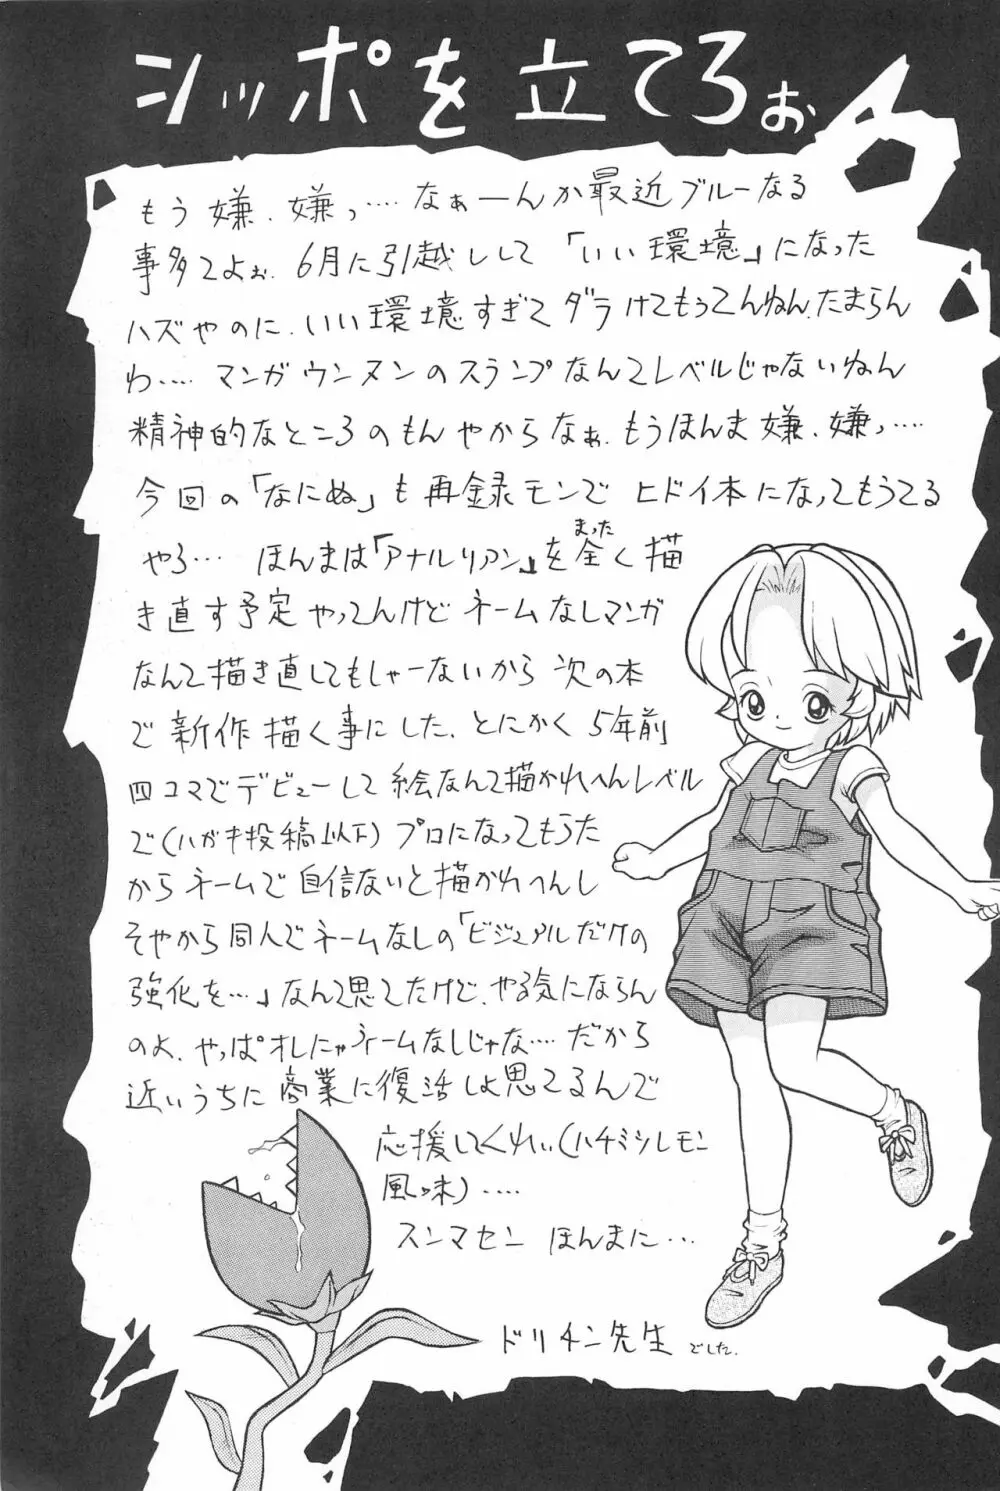 シッポを立てろぉ
もう嫌、嫌っ‥‥なぁーんか最近ブルーなる
事多てよぉ、6月に引越しして「いい環境」になった
ハズやのに、いい環境すぎてダラけてもうてんねん、たまらん
わ‥‥マンガウンヌンのスランプなんてレベルじゃないねん
精神的なところのもんやからなぁ、もうほんま嫌、嫌っ‥‥
今回の「なにぬ」も再録モンでヒドイ本になってもうてる
やろ‥‥ほんまは「アナルリアン」を全く描
まった
き直す予定やってんけどネームなしマンガ
なんて描き直してもしゃーないから次の本
で新作描く事にした、とにかく5年前
四コマでデビューして絵なんて描かれへんレベル
で(ハガキ投稿以下)プロになってもうた
からネームで自信ないと描かれへんし
そやから同人でネームなしの「ビジュアルだけの
強化を‥‥」なんて思てたけど、やる気にならん
のよ、やっぱオレにゃネームなしじゃな‥‥だから
近いうちに商業に復活しよ思てるんで
応援してくれぃ(ハチミツレモン
風味)‥‥
スンマセン ほんまに‥‥
ドリチン先生でした.